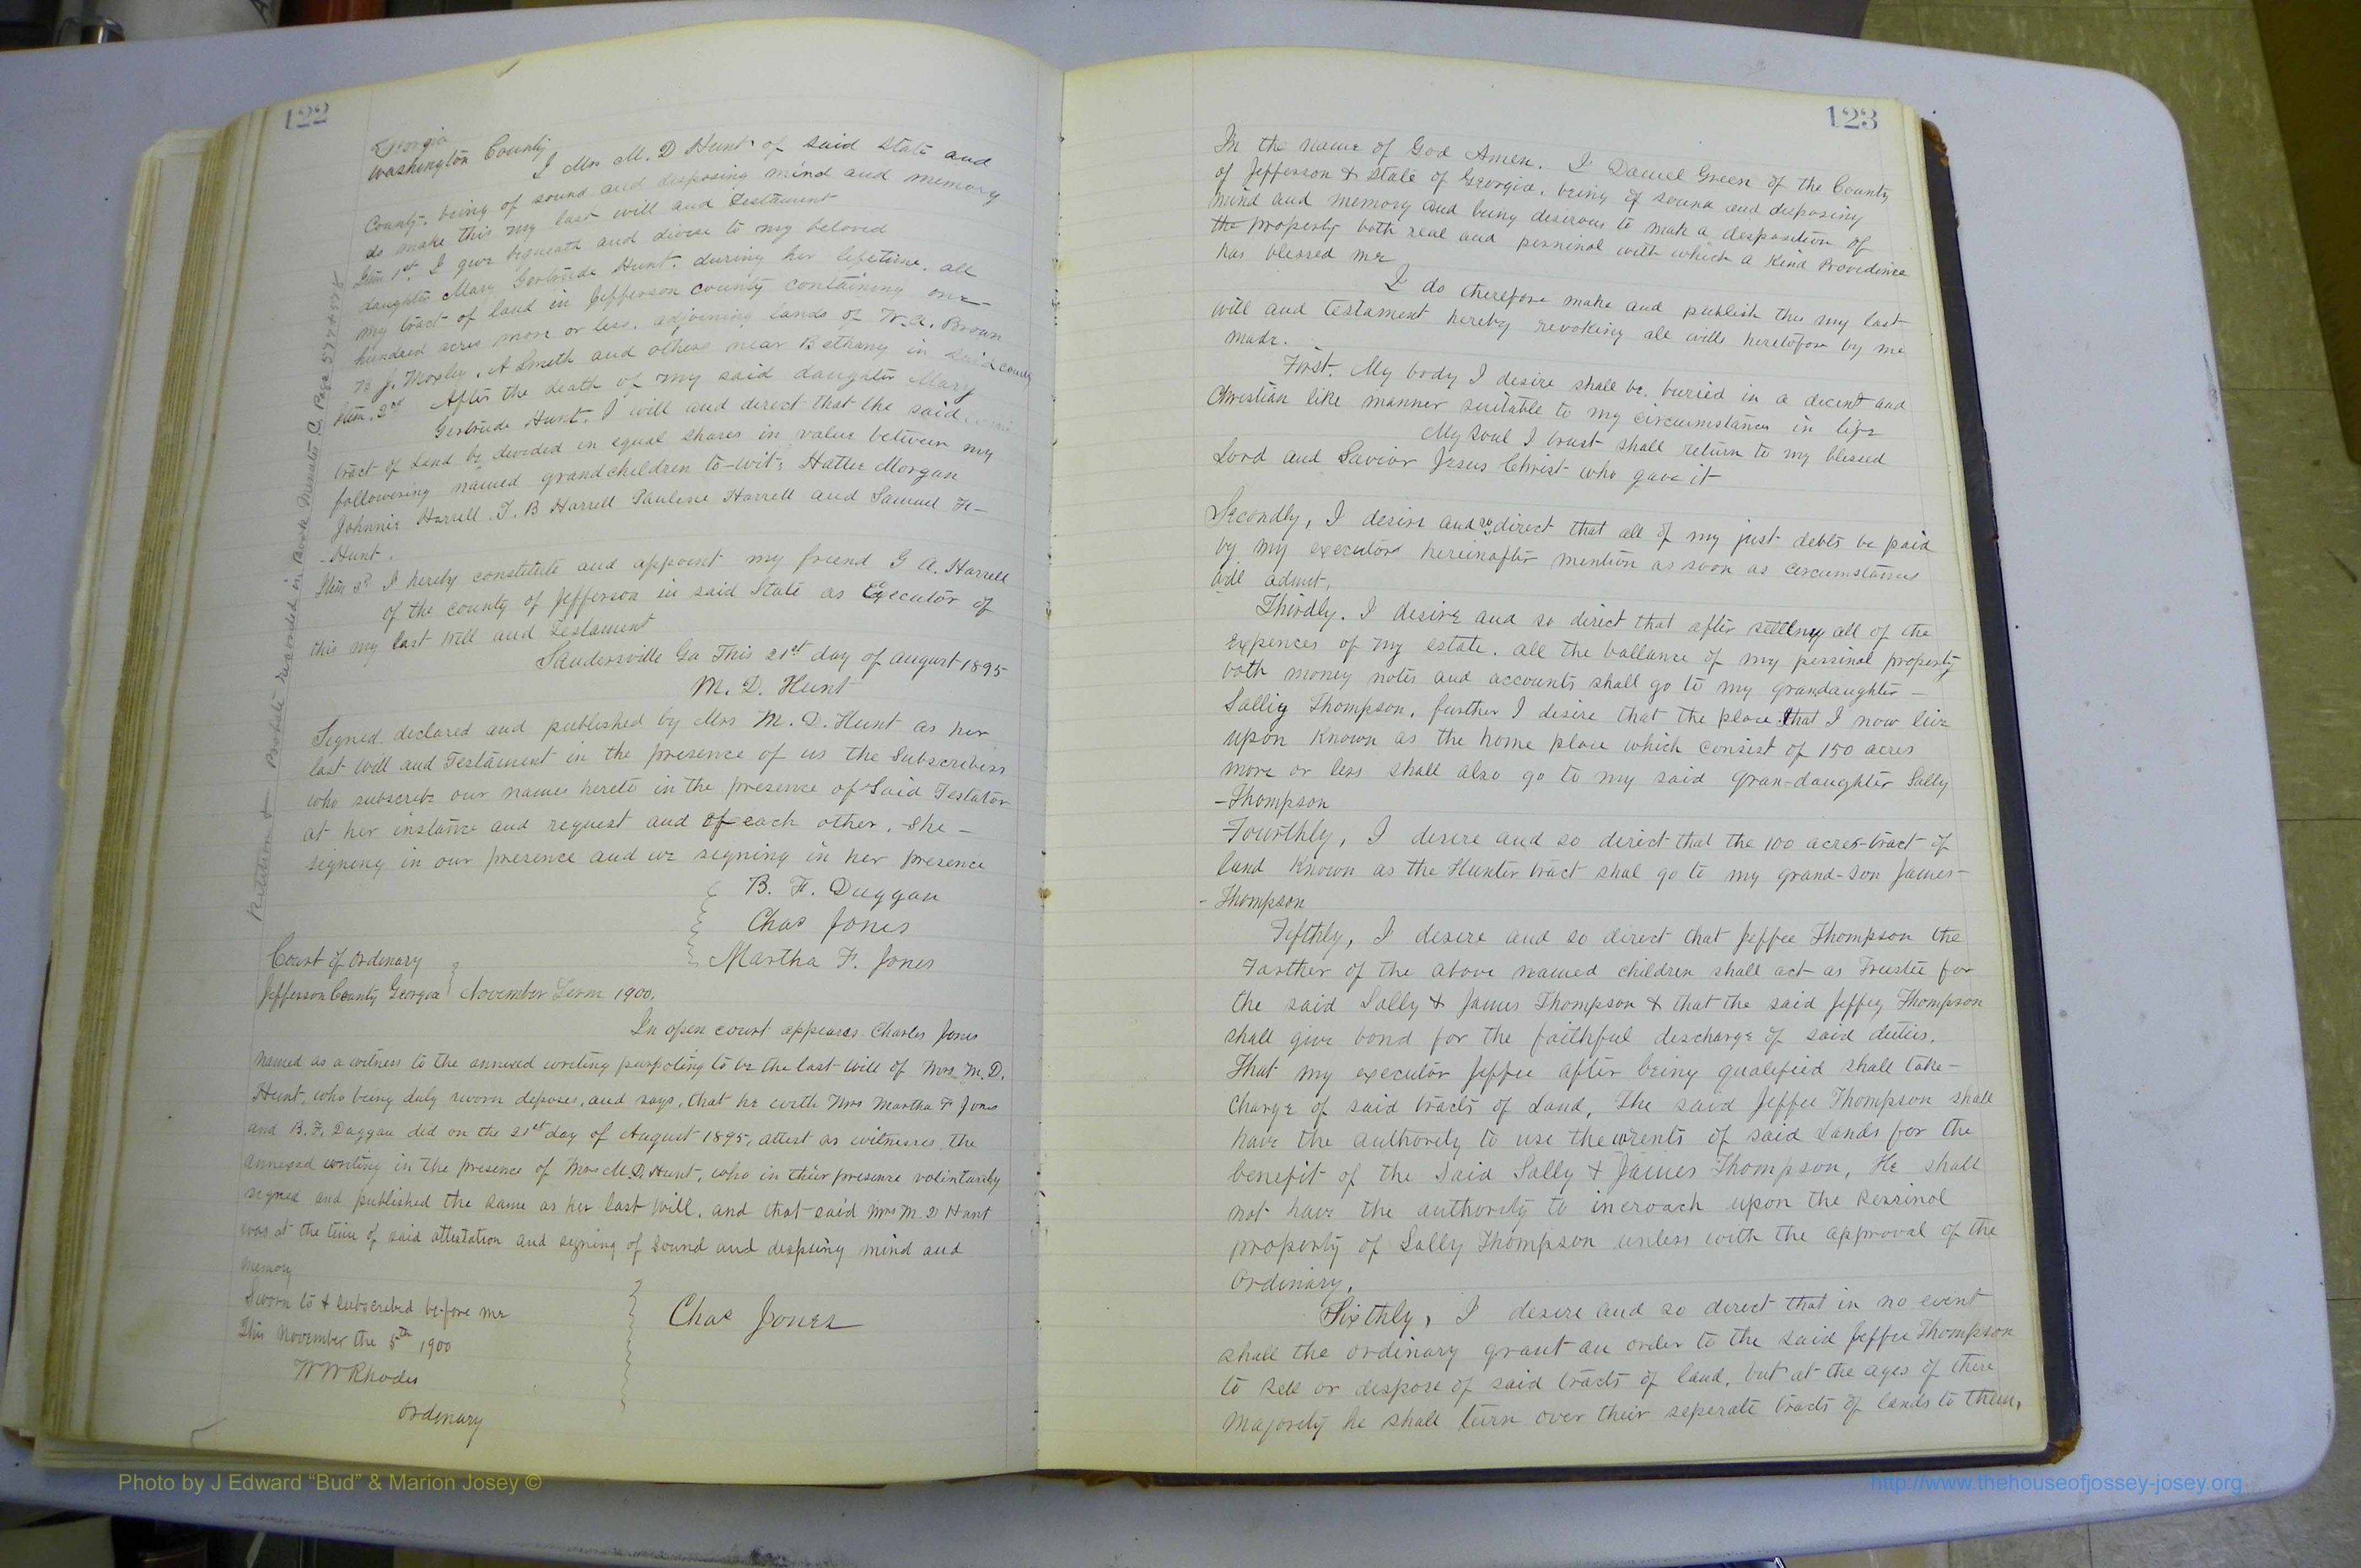 122
Georgia
Washington County
I Mrs M. D Hunt of said State and
County, being of sound and desposing mind and memory
do make this my last will and Testament
Item 1st. I give bequeath and divise to my beloved
daughter Mary Gertrude Hunt, during her lifetime, all
my tract of land in Jefferson County containing one-
hundred acres more or less, adjoining lands of W. A. Brown
J. Moxley, A Smith and others near Bethany in said county
Item. 2nd After the death of my said daughter Mary
Gertrude Hunt, I will and direct that the said
tract of Land be devided in equal shares in value between my
followering named grandchildren to-wit; Hattie Morgan
Johnnie Harrell T. B Harrell Paulene Harrell and Samuel H-
-Hunt.
Item 3rd I hereby constitute and appoint my friend G A. Harrell
of the county of Jefferson in said State as Executor of
this my last Will and Testament
Sandersville Ga This 21st day of August 1895
M. D. Hunt
Signed declared and published by Mrs M. D. Hunt as her
last will and Testament in the presence of us the Subscribers
who subscribe our names hereto in the presence of Said Testator
at her instance and request and of each other, She -
signing in our presence and we signing in her presence
B. F. Duggan
Chas Jones
Martha F. Jones
Petition & Probate recorded in Book Minutes C Page 577 & 578
Court of Ordinary
Jefferson County Georgia November Term 1900.
In open court appears Charles Jones
named as a witness to the annexed writing purpoting to be the last will of Mrs M. D.
Hunt, who being duly sworn deposes, and says, that he with Mrs Martha F Jones
and B. F. Duggan did on the 21st day of August 1895, attest as witnesses the
annexed writing in the presence of Mrs M. D. Hunt, who in their presence voluntarily
signed and published the same as her last will, and that said Mrs M D Hunt
was at the time of said attestation and signing of sound and desposing mind and
memory
Sworn to & subscribed before me
This November the 5th 1900
W W Rhodes
Ordinary
Chas Jones
123
In the name of God Amen. I Daniel Green of the County
of Jefferson & State of Georgia, being of sound and disposing
mind and memory and being desirous to make a desposition of
the property both real and persinal with which a Kind Providince
has blessed me
I do therefore make and publish this my last
will and testament hereby revoking all wills heretofore by me
made.
First. My body I desire shall be buried in a decent and
Christian like manner suitable to my circumstances in life
My soul I trust shall return to my blessed
Lord and Savior Jesus Christ who gave it
Secondly, I desire and so direct that all of my just debts be paid
by my executors hereinafter mention as soon as circumstances
will admit,
Thirdly. I desire and so direct that after settling all of the
Expences of my estate, all the ballance of my persinal property
both money notes and accounts shall go to my grandaughter -
Sallie Thompson, further I desire that the place that I now live
upon known as the home place which consist of 150 acres
more or less shall also go to my said gran-daughter Sally
-Thompson
Fourthly, I desire and so direct that the 100 acres tract of
land known as the Hunter tract shal go to my grand-son James-
- Thompson
Fifthly, I desire and so direct that Jeffee Thompson the
Farther of the above named children shall act as Trustee for
the said Sally & James Thompson & that the said Jeffey Thompson
shall give bond for the faithful descharge of said duties.
That my executor Jeffee after being qualified shall take-
charge of said tracts of Land, The said Jeffee Thompson shall
have the authority to use the rents of said Lands for the
benefit of the said Sally & James Thompson, He shall
not have the authority to incroach upon the Persinal
property of Sally Thompson unless with the approval of the
Ordinary.
Sixthly, I desire and so direct that in no event
shall the ordinary grant an order to the said Jeffee Thompson
to sell or despose of said tracts of land, but at the ages of there
Majority he shall turn over their seperate tracts of lands to them.
Photo by J Edward “Bud” & Marion Josey ©
http://www.thehouseofjossey-josey.org